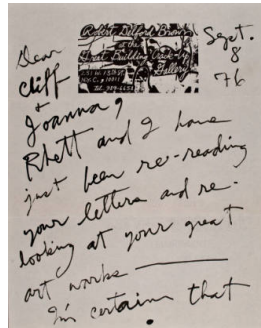 Robert Delford Brown
at the
Great Building Crack-Up
Gallery
251 W. 13th St.
N.Y.C. 10011
Tel.
Sept.
8
76
Dear
Cliff
+
Joanna,
Rhett and I have
just been re-reading
your letters and re-
looking at your great
art works —
I'm certain that